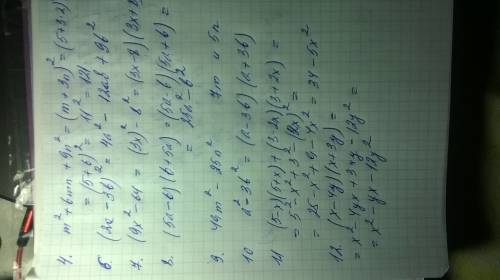 4. m² + 6mn + 9n² = (m + 3n)² = (5 + 3·2)
= (5 + 6)² = 11² = 121
6 (2a - 3b)² = 4a² - 12ab + 9b²
7. (9x² - 64 = (3x)² - 8² = (3x - 8)(3x + 8)
8. (5a - b)(b + 5a) = (5a - b)(5a + b) =
= 25a² - b²
9. 49m² - 25n² 7m и 5n
10 a² - 3b² = (a - 3b)(a + 3b)
11 (5 - x)(5 + x) + (3 - 2x)(3 + 2x) =
= 5² - x² + 3² - (2x)² =
= 25 - x² + 9 - 4x² = 34 - 5x²
12. (x - 4y)(x + 3y) =
= x² - 4yx + 3xy - 12y² =
= x² - yx - 12y²